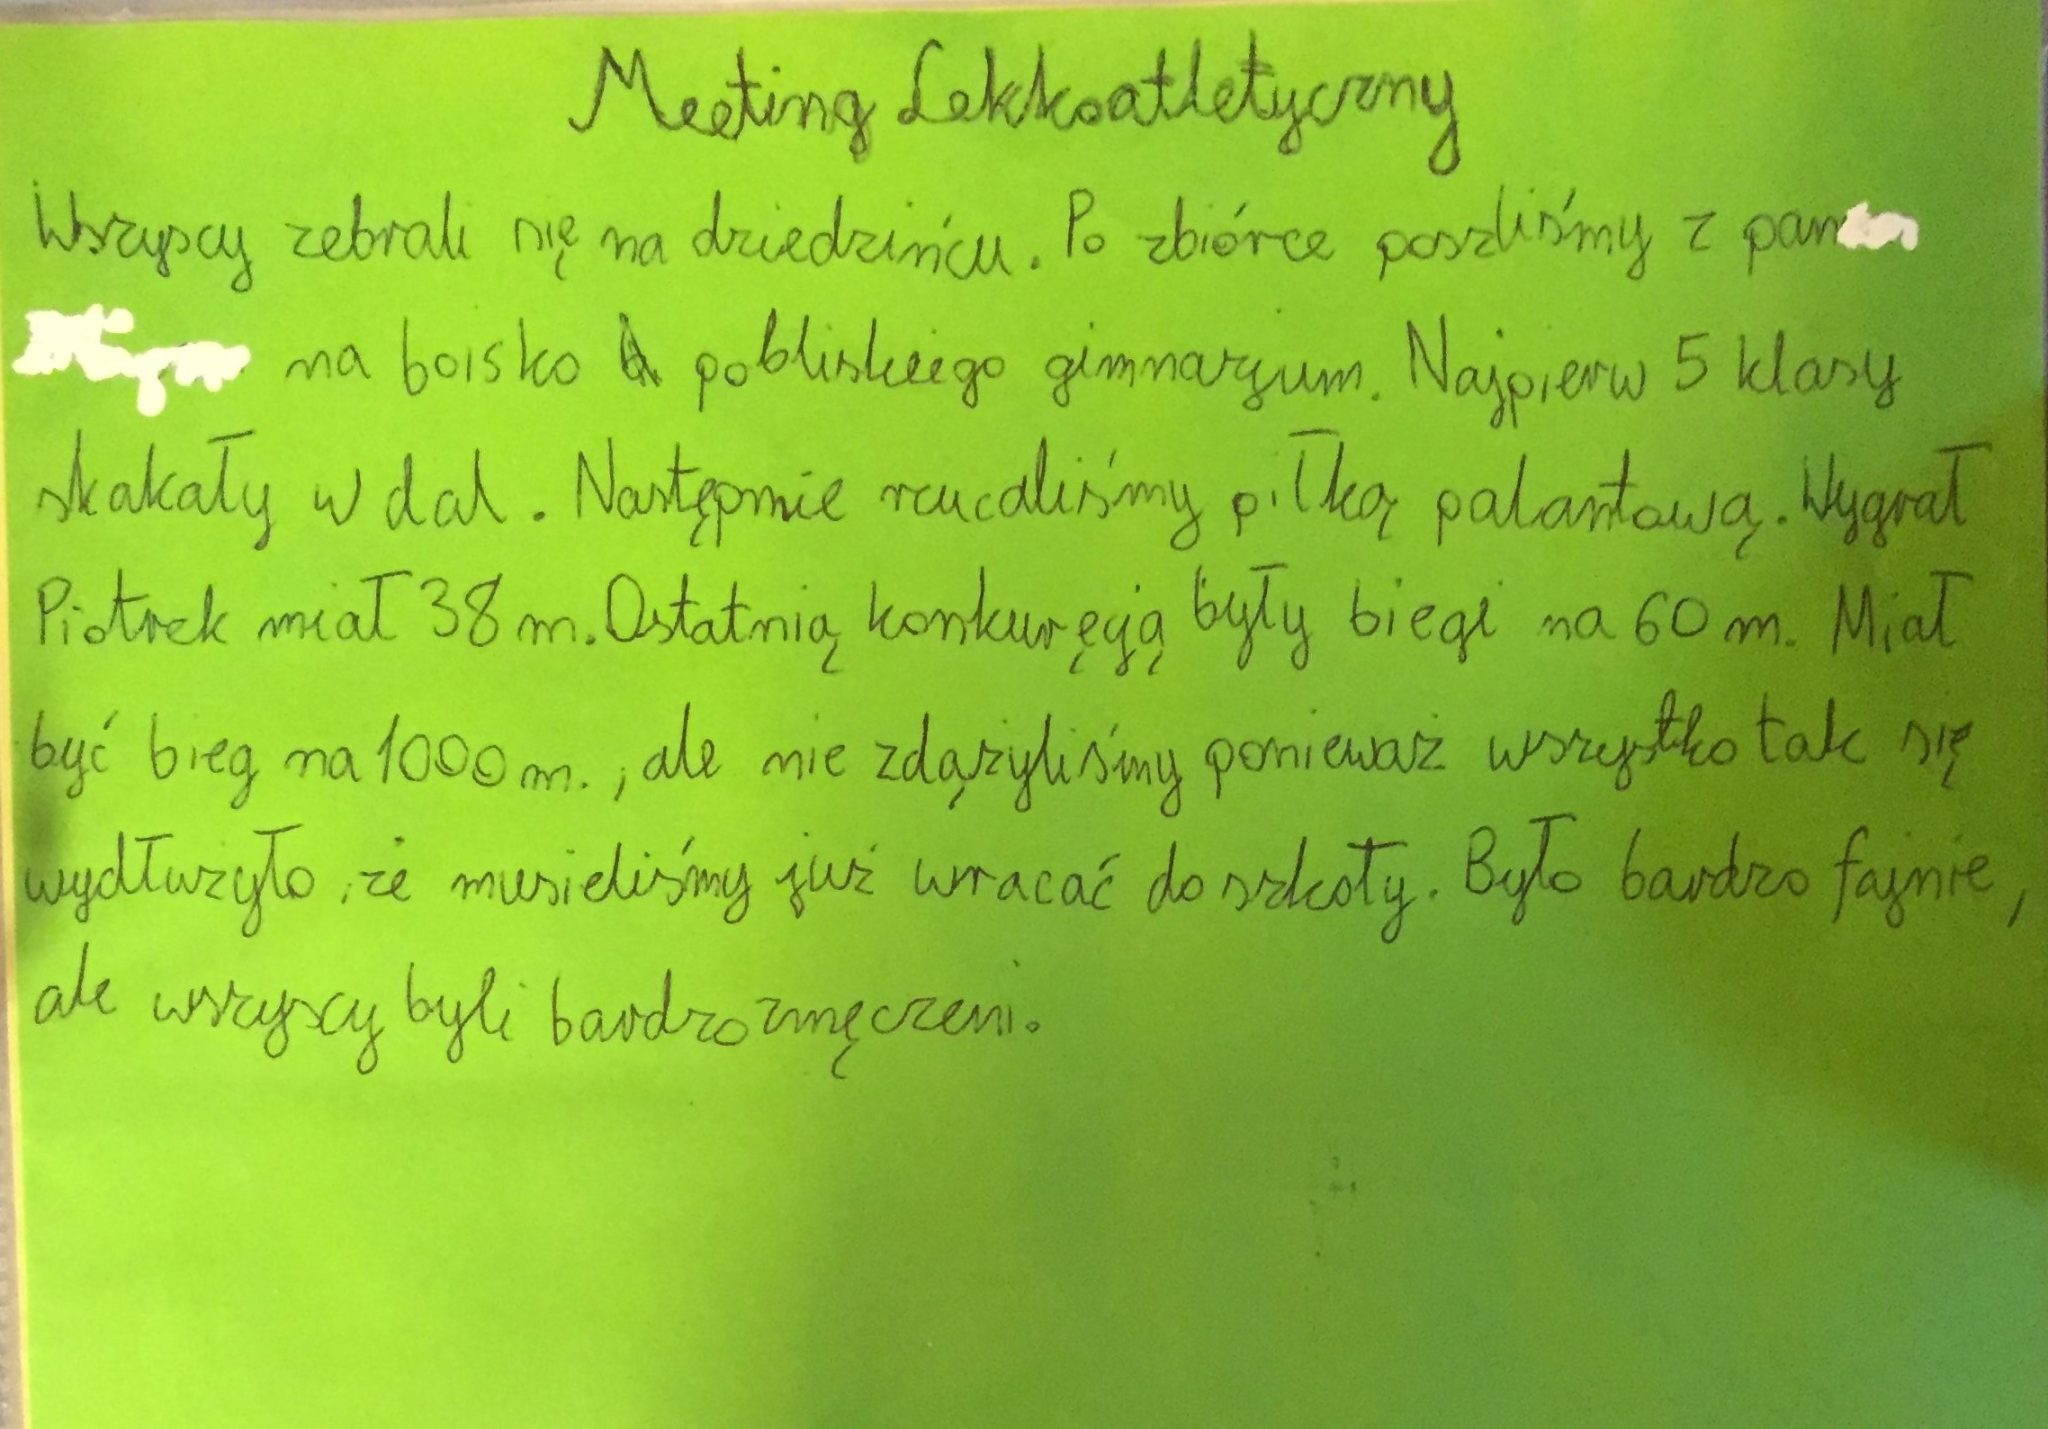 Meeting Lekkoatletyczny
Wszyscy zebrali się na dziedzińcu. Po zbiórce poszliśmy z
na boisko pobliskiego gimnazjum. Najpierw 5 klasy
skakały w dal. Następnie rzucaliśmy piłką palantową. Wygrał
Piotrek miał 38 m. Ostatnią konkuręcją były biegi na 60 m. Miał
być bieg na 1000 m., ale nie zdążyliśmy ponieważ wszystko tak się
wydłużyło, że musieliśmy już wracać do szkoły. Było bardzo fajnie,
ale wszyscy byli bardzo zmęczeni.